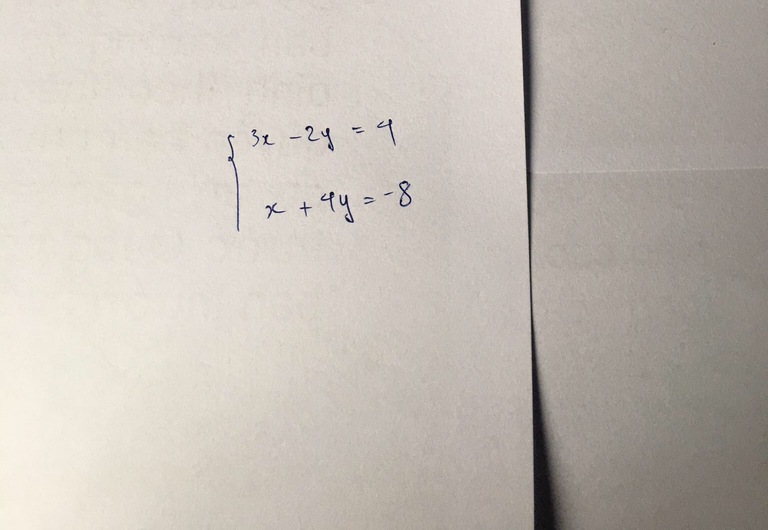 3x - 2y = 4
x + 4y = -8